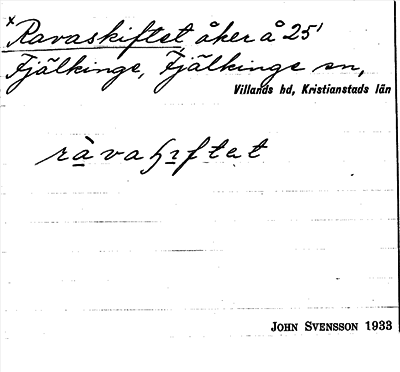 x Ravaskiftet, åker å 25'
Fjälkinge, Fjälkinge sn,
Villands hd, Kristianstads län
ràvaꞕɪftət
JOHN SVENSSON 1933